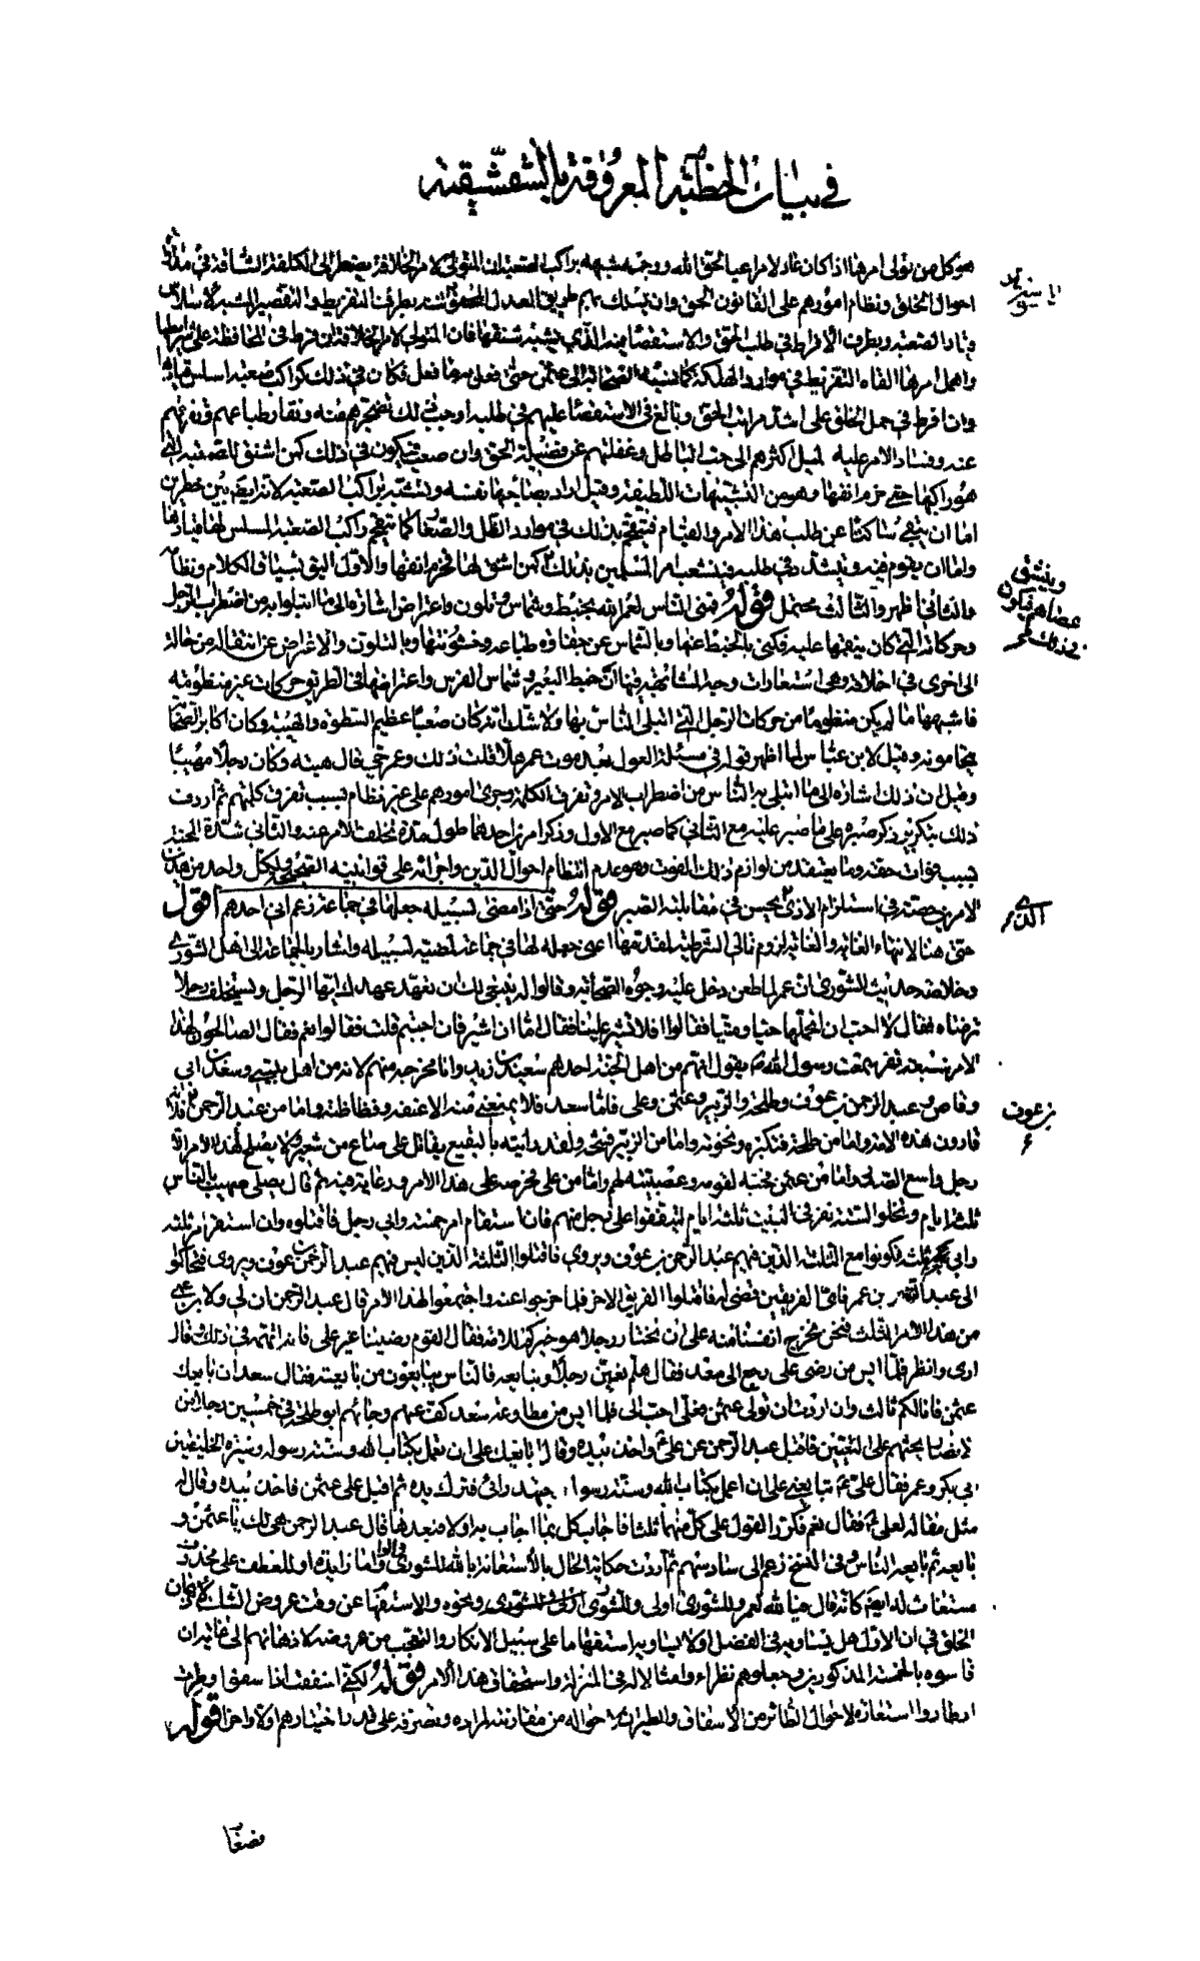 في بيان الخطبة المعروفة بالشقشقية
هو كل من تولى امرها اذا كان عادلا مراعيا لحق الله ووجه شبهه براكب الصعبة ان المتولى لامر الخلافة يضطر الى الكلفة الشاقة في مداراة
احوال الخلق ونظام امورهم على القانون الحق وان يسلك بهم طريق العدل المحفوف بطرفي التفريط والتقصير المشبه لاسلاس
قياد الصعبة وبطرف الافراط في طلب الحق والاستقصاء فيه الذي يشبه شنقها فان المتولى لامر الخلافة متى فرط في المحافظة على شرايطها
واهمل امرها القاه التفريط في موارد الهلكة كما نسبه الصحابة الى عثمان حتى فعل به ما فعل فكان في ذلك كراكب صعبة اسلس قيادها
وان افرط في حمل الخلق على اشد مراتب الحق وبالغ في الاستقصاء عليهم في طلبه اوجب ذلك تضجرهم منه ونفار طباعهم وتفرقهم
عنه وفساد الامر عليه لميل اكثرهم الى حب الباطل وغفلتهم عن فضيلة الحق وان صعب فيكون في ذلك كمن اشنق الصعبة التي
هو راكبها حتى خرم انفها وهو من التشبيهات اللطيفة وقيل اراد بصاحبها نفسه وتشبه براكب الصعبة لانه ايضا بين خطرين
اما ان يبقى ساكتا عن طلب هذا الامر والقيام فيتقحم بذلك في موارد الذل والصغار كما يتقحم راكب الصعبة المسلس لها قيادها
واما ان يقوم فيه ويتشدد في طلبه فينشعب امر المسلمين بذلك كمن اشنق لها فخرم انفها والاول اليق بسياق الكلام ونظامه
والثاني اظهر والثالث محتمل قوله فمنى الناس لعمر الله بخبط وشماس وتلون واعتراض اشارة الى ما ابتلوا به من اضطراب الرجل
وحركاته التي كان ينقمها عليه فكنى بالخبط عنها وبالشماس عن جفاوة طباعه وخشونتها وبالتلون والاعتراض عن انتقاله من حالة
الى اخرى في اخلاقه وهي استعارات وجه المشابهة فيها ان خبط البعير وشماس الفرس واعتراضها في الطريق حركات غير منظومة
فاشبهها ما لم يكن منظوما من حركات الرجل التي ابتلى الناس بها ولا شك انه كان صعبا عظيم السطوة والهيبة وكان اكابر الصحابة
يتحامونه وقيل لابن عباس لما اظهر قوله في مسئلة العول بعد موت عمر هلا قلت ذلك وعمر حي قال هبته وكان رجلا مهيبا
وقيل ان ذلك اشارة الى ما ابتلى به الناس من اضطراب الامر وتفرق الكلمة وجرى امورهم على غير نظام بسبب تفرق كلمتهم ثم اردف
ذلك بتكرير ذكر صبره على ما صبر عليه مع الثاني كما صبر مع الاول وذكر امرين احدهما طول مدة تخلف الامر عنه والثاني شدة المحنة
بسبب فوات حقه وما يعتقد من لوازم ذلك الفوت وهو عدم انتظام احوال الدين واجرائه على قوانينه الصحيحة ولكل واحد من هذين
الامرين حصة في استلزام الاذى يحسن في مقابلته الصبر قوله حتى اذا مضى لسبيله جعلها في جماعة زعم اني احدهم اقول
حتى هنا لانتهاء الغاية والغاية لزوم تالي الشرطية لمقدمها اعنى جعله لها في جماعة لمضيه لسبيله واشار بالجماعة الى اهل الشورى
وخلاصة حديث الشورى ان عمر لما طعن دخل عليه وجوه الصحابة وقالوا له ينبغي لك ان تعهد عهدك ايها الرجل وتستخلف رجلا
ترضاه فقال لا احب ان اتحملها حيا وميتا فقالوا افلا تشير علينا فقال اما ان اشير فان احببتم قلت فقالوا نعم فقال الصالحون لهذا
الامر سبعة نفر سمعت رسول الله يقول انهم من اهل الجنة احدهم سعيد بن زيد وانا مخرجه منهم لانه من اهل بيتي وسعد بن ابي
وقاص وعبد الرحمن بن عوف وطلحة والزبير وعثمن وعلى فاما سعد فلا يمنعني منه الا عنفه وفظاظته واما من عبد الرحمن فلانه
قارون هذه الامة واما من طلحة فتكبره ونخوته واما من الزبير فشحه ولقد رايته بالبقيع يقاتل على صاع من شعير ولا يصلح لهذا الامر الا
رجل واسع الصدر واما من عثمن فحبه لقومه وعصبيته لهم واما من على فحرصه على هذا الامر ودعابة فيه ثم قال يصلى صهيب بالناس
ثلثة ايام وتخلوا الستة نفر في البيت ثلثة ايام ليتفقوا على رجل منهم فان استقام امر خمسة وابي رجل فاقتلوه وان استقر امر ثلثة
وابي ثلثة فكونوا مع الثلثة الذين فيهم عبد الرحمن بن عوف ويروى فاقتلوا الثلثة الذين ليس فيهم عبد الرحمن بن عوف ويروى فتحاكموا
الى عبد الله بن عمر فاي الفريقين قضى له فاقتلوا الفريق الاخر فلما خرجوا عنه واجتمعوا لهذا الامر قال عبد الرحمن ان لي ولابن عمي
من هذا الامر الثلث فنحن نخرج انفسنا منه على ان نختار رجلا هو خيركم للامة فقال القوم رضينا غير على فانه اتهمه في ذلك وقال
ارى وانظر فلما ايس من رضى على رجع الى سعد فقال هلم نعين رجلا ونبايعه فالناس يبايعون من بايعته فقال سعد ان بايعك
عثمن فانا لكم ثالث وان اردت ان تولى عثمن فعلى احب الى فلما ايس من مطاوعة سعد كف عنهم وجائهم ابو طلحة في خمسين رجلا من
الانصار يحثهم على التعيين فاقبل عبد الرحمن عن على واخذ بيده وقال ابايعك على ان تعمل بكتاب الله وسنة رسوله وسيرة الخليفتين
ابي بكر وعمر فقال على تبايعني على ان اعمل بكتاب الله وسنة رسوله واجتهد رائى فترك يده ثم اقبل على عثمن فاخذ بيده وقال له
مثل مقاله لعلى فقال نعم فكرر القول على كل منهما ثلثا فاجاب كل بما اجاب به اولا فبعدها قال عبد الرحمن هي لك يا عثمن و
بايعه ثم بايعه الناس وفي النسخ زعم اني سادسهم ثم اردف حكاية الحال بالاستغاثة بالله للشورى والواو اما زايدة او للعطف على محذوف
مستغاث له ايضا كانه قال فيا لله لعمر وللشورى اولى وللشورى ونحوه والاستفهام عن وقت عروض الشك لاذهان
الخلق في ان الاول هل يساويه في الفضل او لا يساويه استفهاما على سبيل الانكار والتعجب من عروضه لاذهانهم الى غاية ان
قاسوه بالخمسة المذكورين وجعلوهم نظراء وامثالا له في المنزلة واستحقاق هذا الامر قوله لكني اسففت اذا سفوا وطرت
اذ طاروا استعارة لاحوال الطائر من الاسفاف والطيران لاحواله من مقارنته لمراده وتصرفه على قدر اختيارهم اولا واخرا قوله
وينشق
عصاهم فيكون
في ذلك
الذى
بن عوف
فصغا